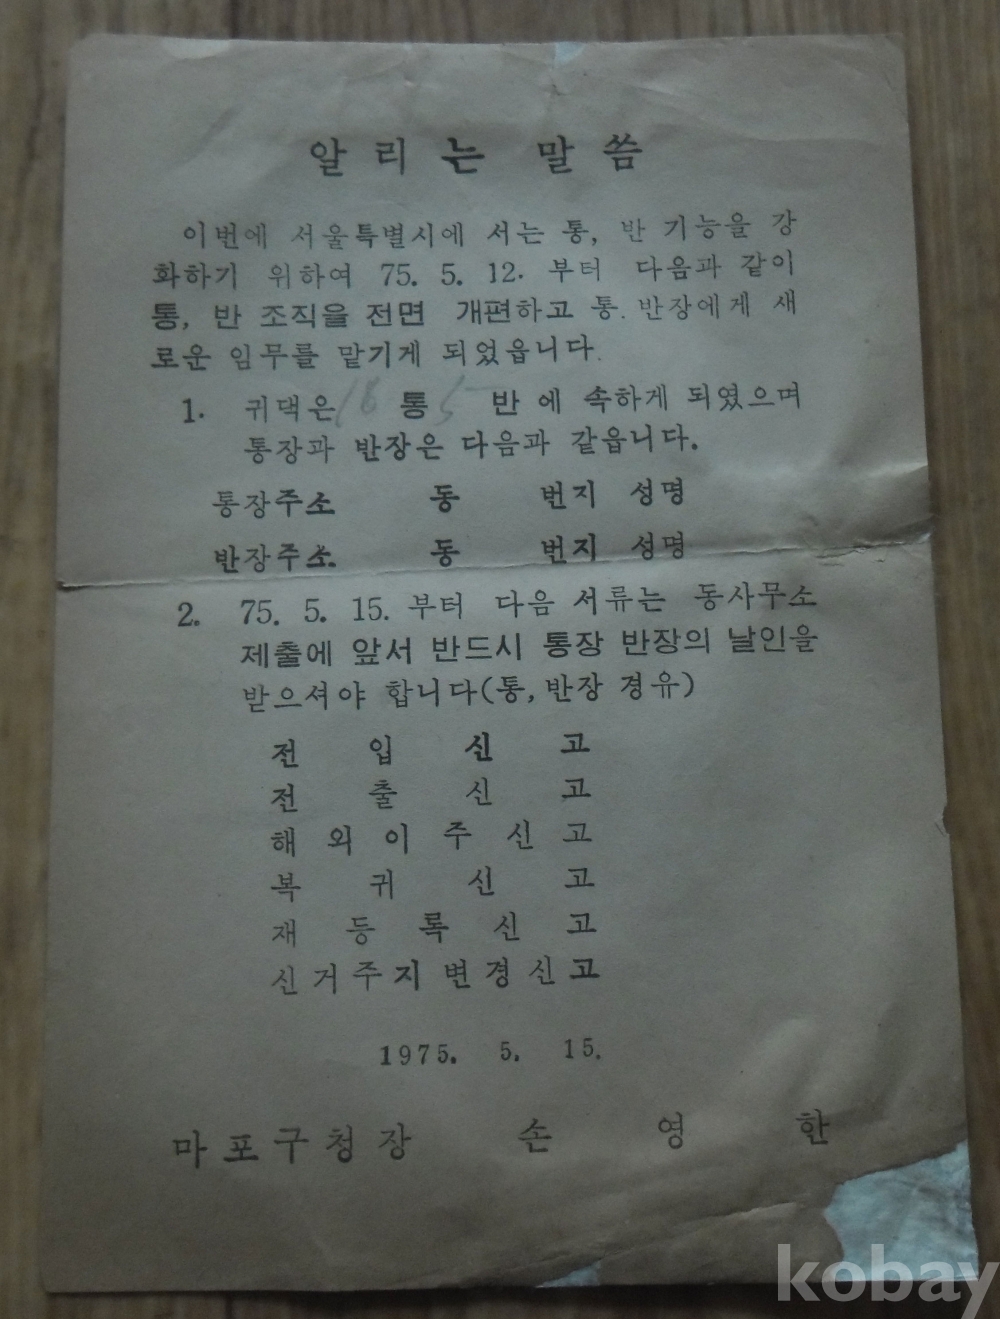 알리는 말씀
이번에 서울특별시에 서는 통, 반 기능을 강
화하기 위하여 75. 5. 12. 부터 다음과 같이
통, 반 조직을 전면 개편하고 통. 반장에게 새
로운 임무를 맡기게 되었읍니다.
1. 귀댁은 18 통 5 반 에 속하게 되였으며
통장과 반장은 다음과 같읍니다.
통장주소 동 번지 성명
반장주소. 동 번지 성명
2. 75. 5. 15. 부터 다음 서류는 동사무소
제출에 앞서 반드시 통장 반장의 날인을
받으셔야 합니다(통, 반장 경유)
전입신고
전출신고
해외이주신고
복귀신고
재등록신고
신거주지변경신고
1975. 5. 15.
마포구청장 손영한
kobay